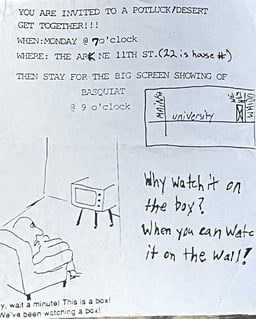 YOU ARE INVITED TO A POTLUCK/DESERT
GET TOGETHER!!!
WHEN:MONDAY @ 7o'clock
WHERE: THE ARK NE 11TH ST.(22 is house #)
THEN STAY FOR THE BIG SCREEN SHOWING OF
BASQUIAT
@ 9 o'clock
MAIN ST
university
Why watch it on
the box?
When you can Watc
it on the Wall!
y, wait a minute! This is a box!
We've been watching a box!